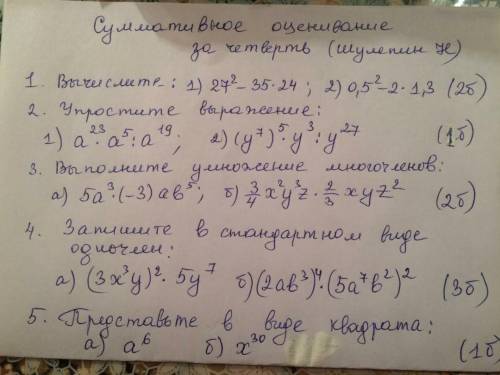 Суммативное оценивание
за четверть (Шулепин Н)
1. Вычислите: 1) 27² - 35·24 ; 2) 0,5² - 2·1,3 (2б)
2. Упростите выражение:
1) a²³·a⁵:a¹⁹; 2) (y⁷)⁵·y³:y²⁷ (1б)
3. Выполните умножение многочленов:
а) 5a³·(-3)ab⁵; б) 3/4 x²y³z · 2/3 xyz² (2б)
4. Запишите в стандартном виде
одночлен:
а) (3x³y)²·5y⁷ б) (2ab³)⁴·(5a⁷b²)² (3б)
5. Представьте в виде квадрата:
а) a⁶ б) x³⁰ (1б